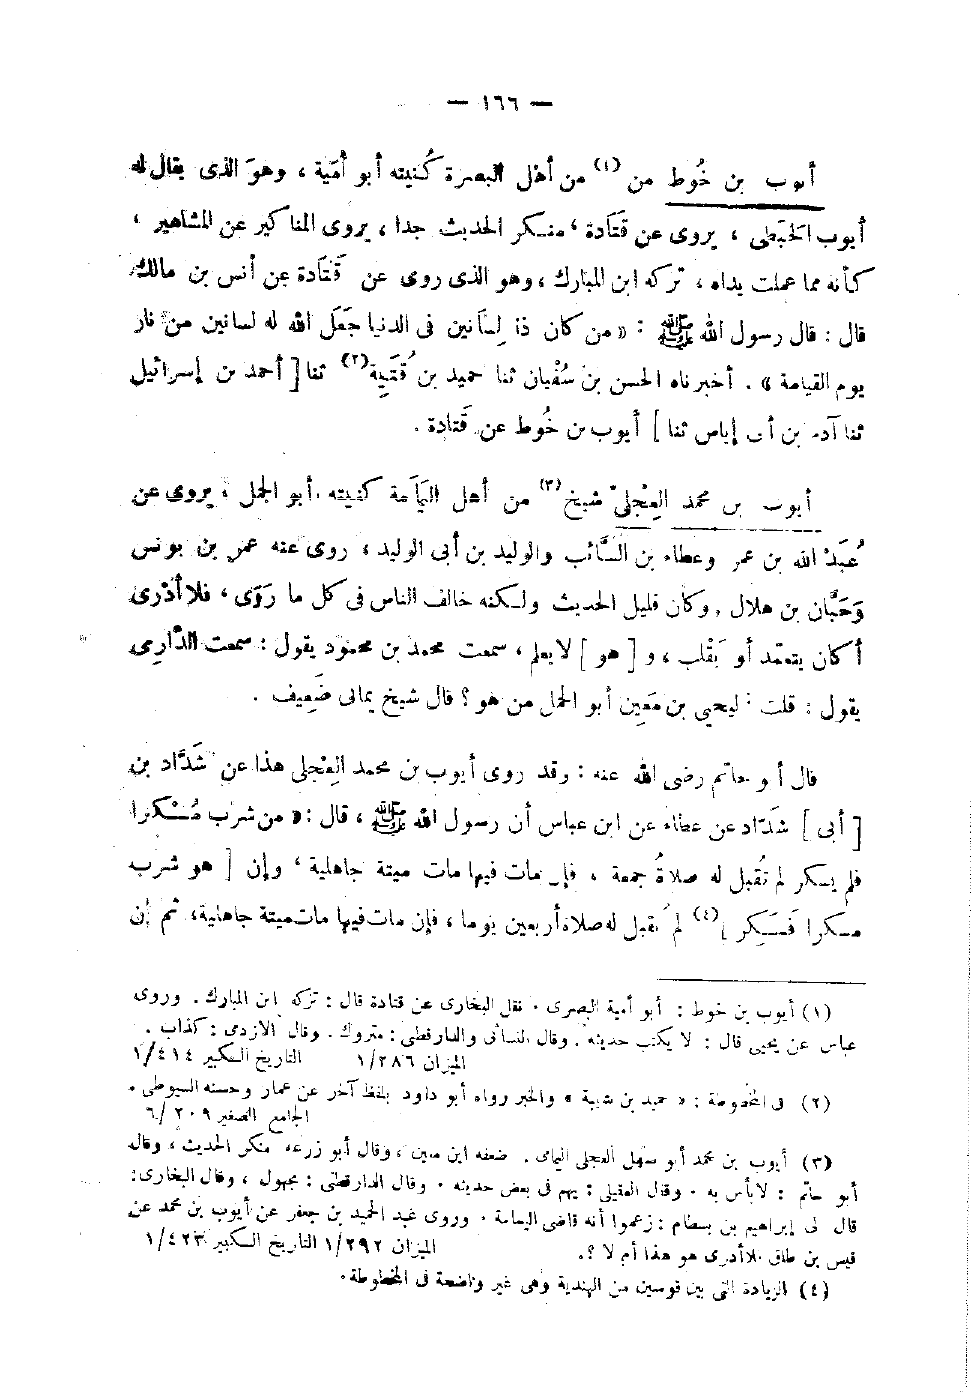 — ١٦٦ —
أيوب بن خُوط من (١) من أهل البصرة كُنيته أبو أمَيّة ، وهو الذى يقال له
أيوب الحَبَطى ، يروى عن قَتَادة ، منكر الحديث جدا ، يروى المناكير عن المشاهير ،
كأنه مما عملت يداه ، تركه ابن المبارك ، وهو الذى روى عن قَتَادة عن أنس بن مالك
قال : قال رسول الله ﷺ : « من كان ذا لِسَانين فى الدنيا جَعَل الله له لسانين من نار
يوم القيامة » . أخبرناه الحسن بن سُفْيان ثنا حميد بن قُتَيبة (٢) ثنا [ أحمد بن إسرائيل
ثنا آدم بن أبى إياس ثنا ] أيوب بن خُوط عن قَتَادة .
أيوب بن محمد العِجْلى شيخ (٣) من أهل اليَمَامة كنيته أبو الجمل ، يروى عن
عُبَيْد الله بن عمر وعطاء بن السَّائب والوليد بن أبى الوليد ، روى عنه عمر بن يونس
وَحَبَّان بن هلال , وكان قليل الحديث ولكنه خالف الناس فى كل ما رَوَى ، فلا أدْرى
أكان يتعمد أو يَقْلب ، و [ هو ] لا يعلم ، سمعت محمد بن محمود يقول : سمعت الدَّارِمى
يقول : قلت ليحيى بن مَعِين أبو الجمل من هو ؟ قال شيخ يمانى ضَعِيف .
قال أبو حاتم رضى الله عنه : وقد روى أيوب بن محمد العِجْلى هذا عن شَدَّاد بن
[ أبى ] شَدَّاد عن عطاء عن ابن عباس أن رسول الله ﷺ ، قال : « من شرب مُسْكرا
فلم يسكر لم تُقبل له صلاةُ جمعة ، فإن مات فيها مات ميتة جاهلية ، وإن [ هو شرب
مسكرا فَسَكِر ] (٤) لم تقبل له صلاة أربعين يوما ، فإن مات فيها مات ميتة جاهلية ، ثم إن
(١) أيوب بن خوط : أبو أمية البصرى . نقل البخارى عن قتادة قال : تركه ابن المبارك . وروى
عباس عن يحيى قال : لا يكتب حديثه . وقال النسائى والدارقطنى : متروك . وقال الأزدى : كذاب .
الميزان ١/٢٨٦ التاريخ الكبير ١/٤١٤
(٢) فى المخطوطة : « حميد بن شيبة » والخبر رواه أبو داود بلفظ آخر عن عمار وحسنه السيوطى .
الجامع الصغير ٦/٢٠٩
(٣) أيوب بن محمد أبو سهل العجلى اليمامى . ضعفه ابن معين ، وقال أبو زرعة منكر الحديث ، وقال
أبو حاتم : لا بأس به . وقال العقيلى : يهم فى بعض حديثه . وقال الدارقطنى : مجهول ، وقال البخارى :
قال لى إبراهيم بن بسطام : زعموا أنه قاضى اليمامة . وروى عبد الحميد بن جعفر عن أيوب بن محمد عن
قيس بن طلق فلا أدرى هو هذا أم لا ؟. الميزان ١/٢٩٢ التاريخ الكبير ١/٤٢٣
(٤) الزيادة التى بين قوسين من الهندية وهى غير واضحة فى المخطوطة .